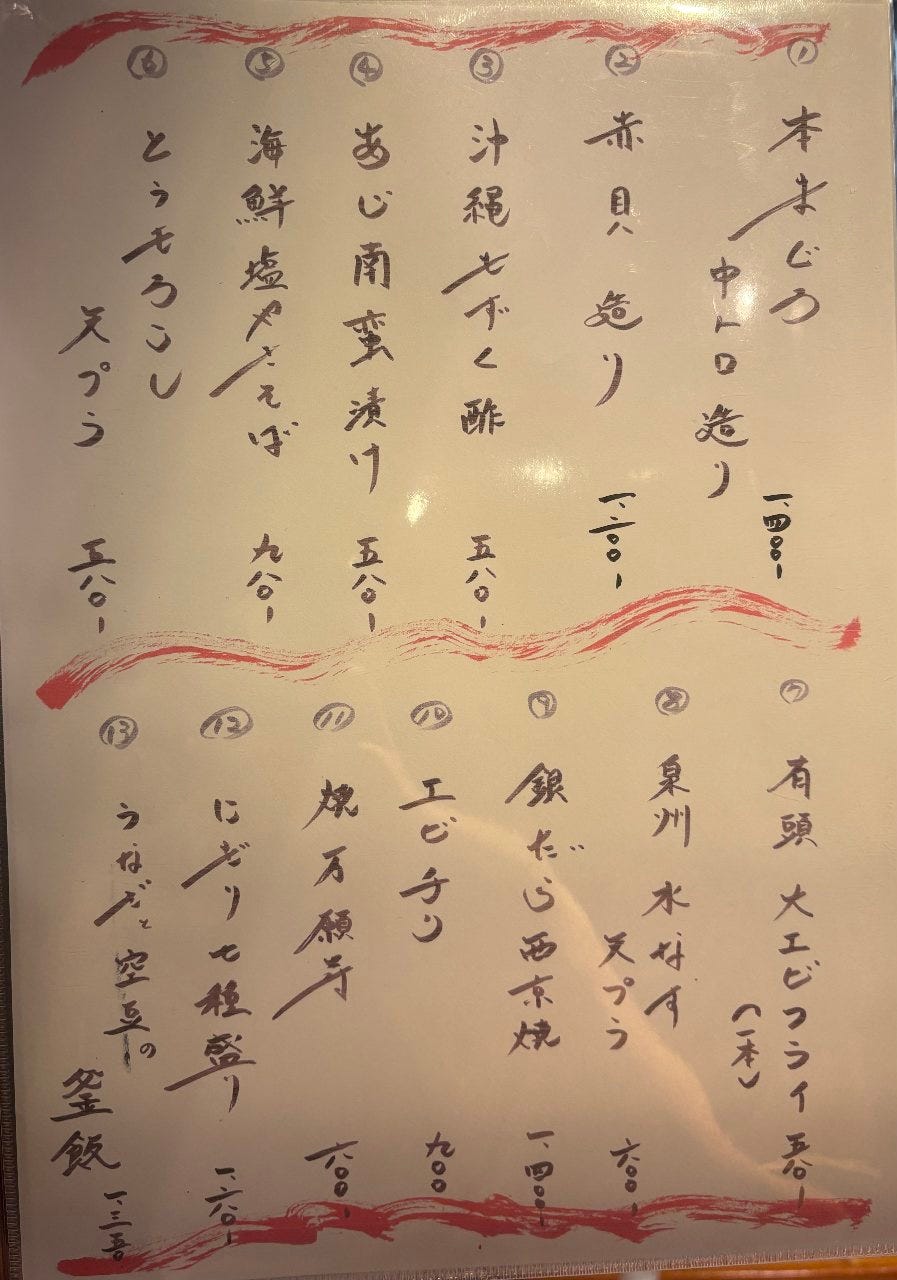 ①
本まぐろ
中トロ造り
一、四〇〇-
②
赤貝 造り
一、二〇〇-
③
沖縄もずく酢
五八〇-
④
あじ南蛮漬け
五八〇-
⑤
海鮮塩やきそば
九八〇-
⑥
とうもろこし
天プラ
五八〇-
⑦
有頭 大エビフライ
(一本)
五八〇-
⑧
泉州 水なす
天プラ
六〇〇-
⑨
銀だら西京焼
一、四〇〇-
⑩
エビチリ
九〇〇
⑪
焼万願寺
六〇〇-
⑫
にぎり七種盛り
一、六八〇-
⑬
うなぎと空豆の
釜飯